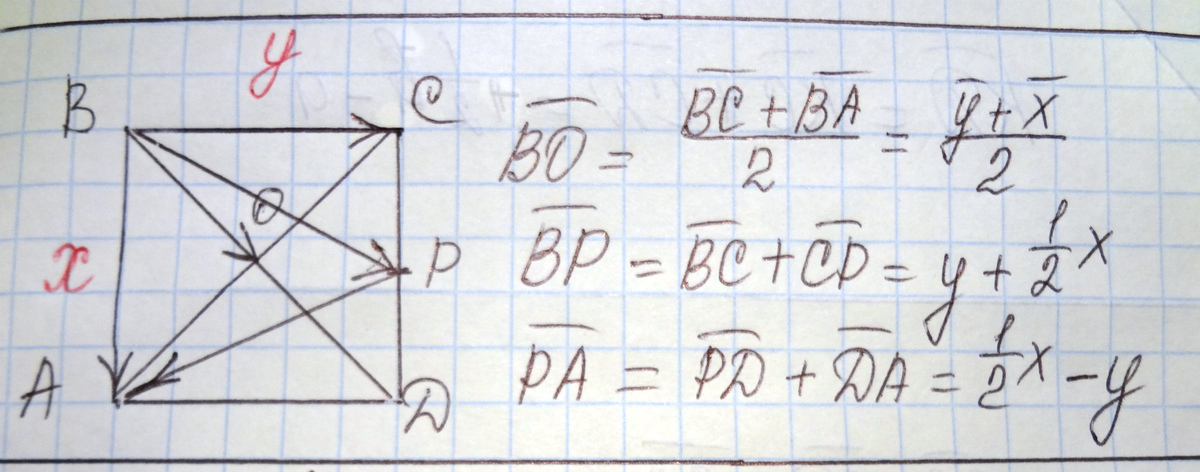 y
B C
O
x P
A D
BO = (BC + BA)/2 = (y + x)/2
BP = BC + CP = y + 1/2 x
PA = PD + DA = 1/2 x - y